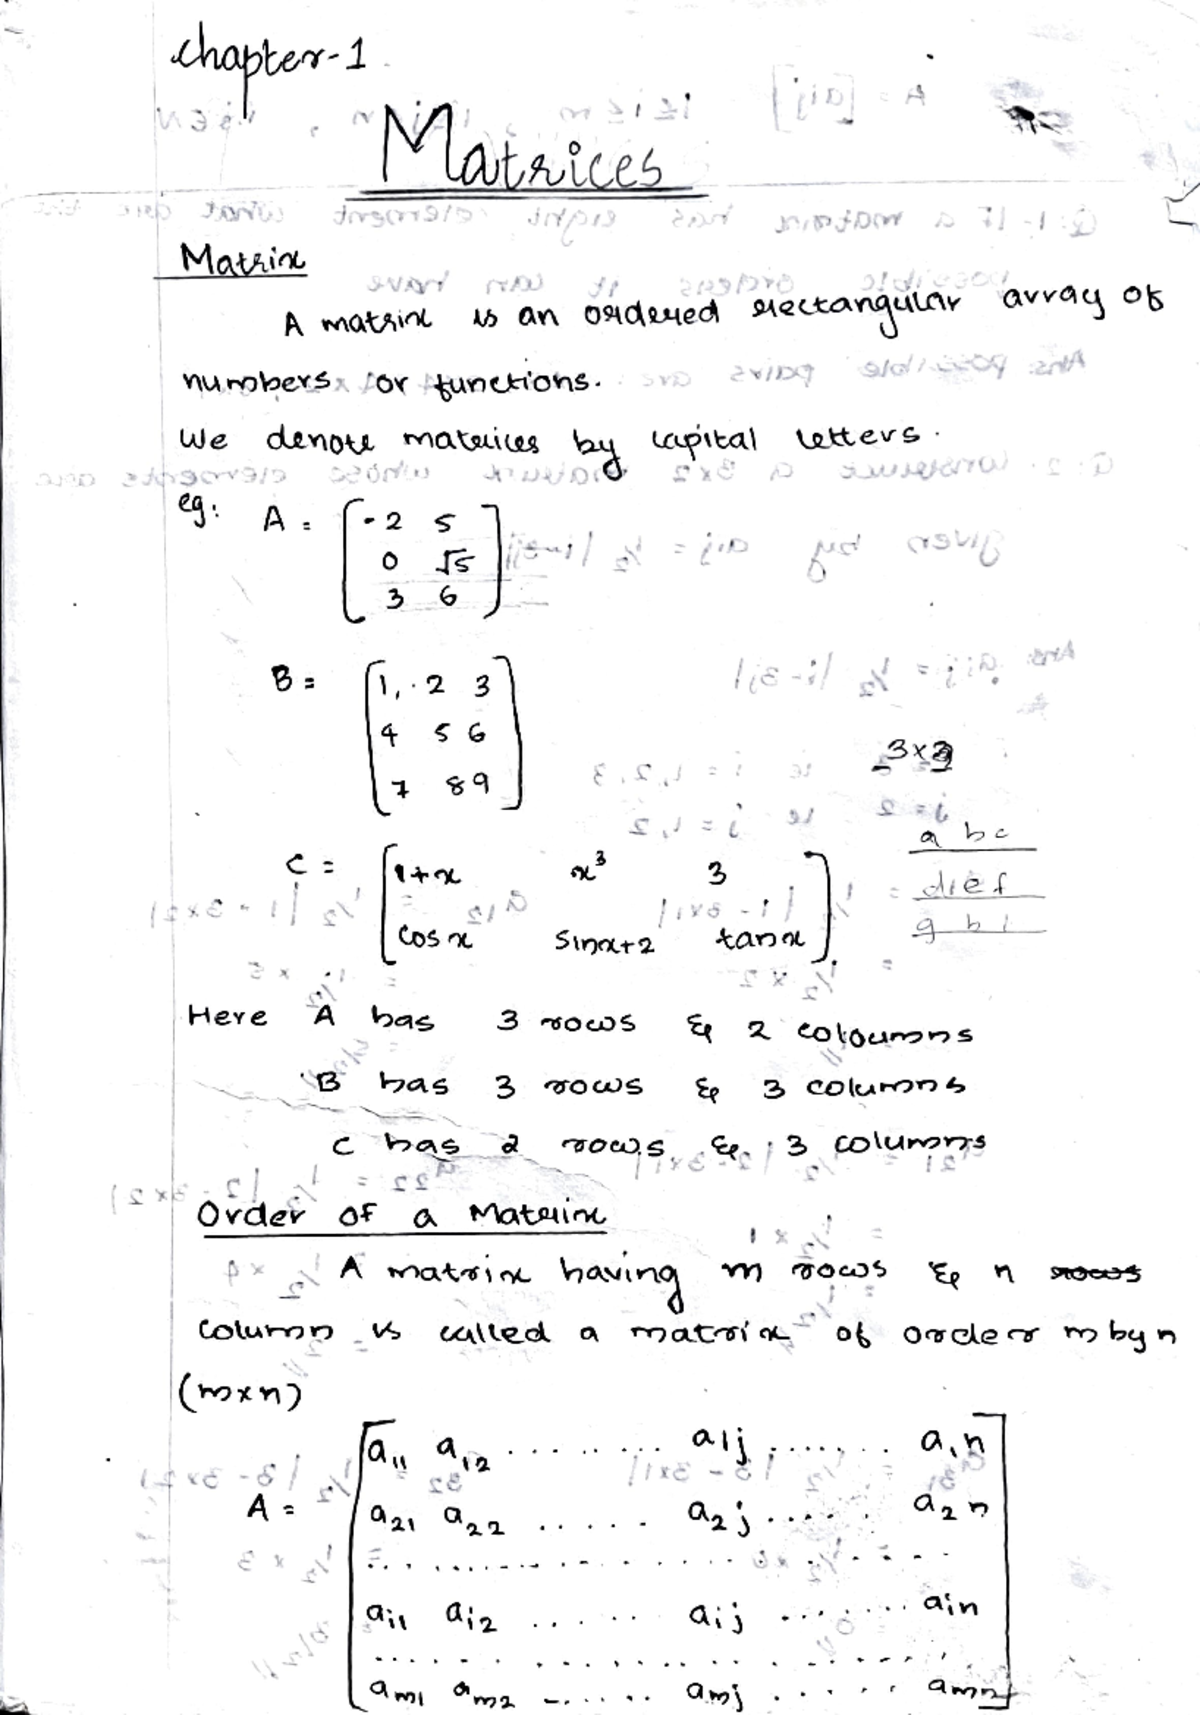 chapter-1
Matrices
Matrix
A matrix is an ordered rectangular array of
numbers or functions.
We denote matrices by capital letters.
eg: A = [-2 5
0 √5
3 6]
B = [1, 2 3
4 5 6
7 8 9]
3×3
a b c
d e f
g h i
C = [1+x x³ 3
cos x sinx+2 tanx]
Here A has 3 rows & 2 coloumns
B has 3 rows & 3 columns
C has 2 rows & 3 columns
Order of a Matrix
A matrix having m rows & n rows
column is called a matrix of order m by n
(m×n)
A = [a11 a12 ......... a1j ....... a1n
a21 a22 ..... a2j ..... a2n
.....................
ai1 ai2 ...... aij ....... ain
.....................
am1 am2 ...... amj ..... amn]